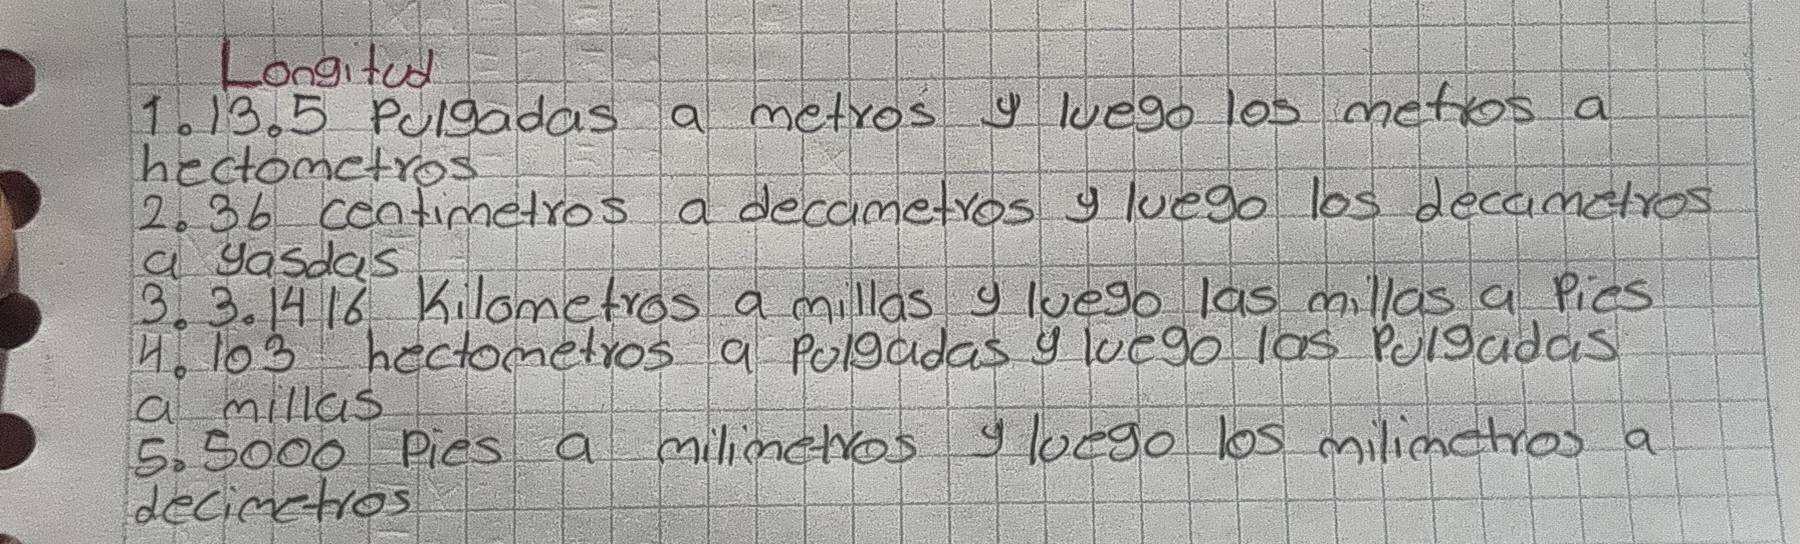 Longitud
1. 13.5 Pulgadas a metros y luego los metros a
hectometros
2. 36 centimetros a decametros y luego los decametros
a yasdas
3. 3.1416 Kilometros a millas y luego las millas a Pies
4. 103 hectometros a Pulgadas y luego las Pulgadas
a millas
5. 5000 Pies a milimetros y luego los milimetros a
decimetros